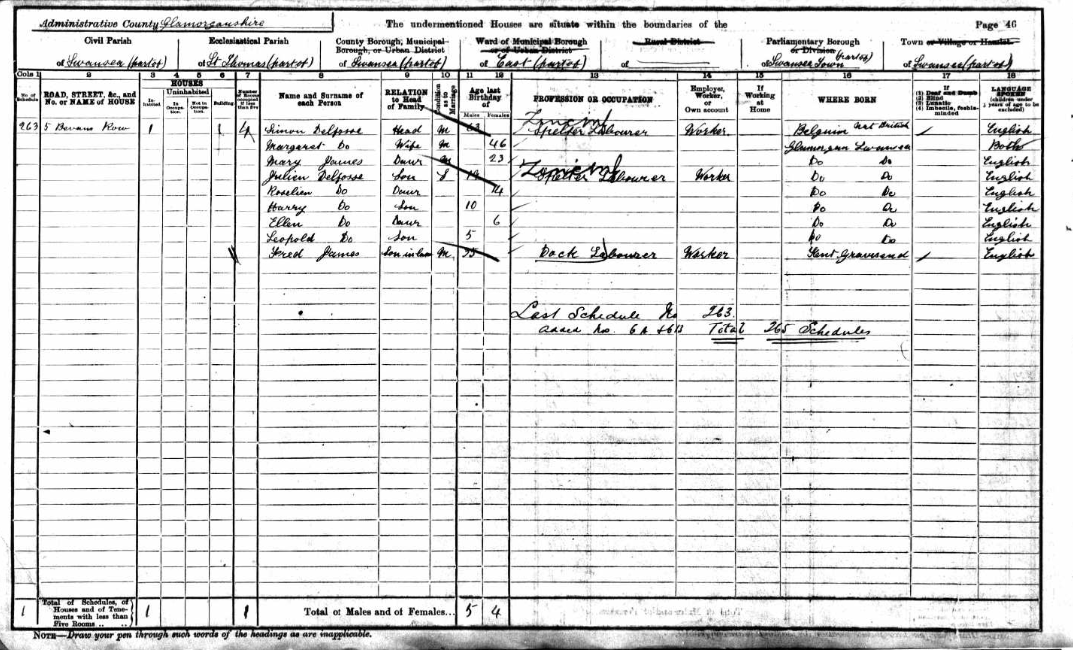 Administrative County Glamorganshire
The undermentioned Houses are situate within the boundaries of the
Page 46
Civil Parish
of Swansea (part of)
Ecclesiastical Parish
of St Thomas (part of)
County Borough, Municipal Borough, or Urban District
of Swansea (part of)
Ward of Municipal Borough or of Urban District
of East (part of)
Rural District
of
Parliamentary Borough or Division
of Swansea Town (part of)
Town or Village or Hamlet
of Swansea (part of)
Cols 1 2 3 4 5 6 7 8 9 10 11 12 13 14 15 16 17 18
No. of Schedule
ROAD, STREET, &c., and No. or NAME of HOUSE
HOUSES
Inhabited
Uninhabited
In Occupation
Not in Occupation
Building
Number of Rooms if less than five
Name and Surname of each Person
RELATION to Head of Family
Condition as to Marriage
Age last Birthday of
Males
Females
PROFESSION OR OCCUPATION
Employer, Worker, or Own account
If Working at Home
WHERE BORN
If
(1) Deaf and Dumb
(2) Blind
(3) Lunatic
(4) Imbecile, feeble-minded
LANGUAGE SPOKEN (children under 3 years of age to be excluded)
263 5 Bevans Row 1 4 Simon Delfosse Head M Spelter Labourer Worker Belgium Nat British English
Margaret Do Wife M 46 Glamorgan Swansea Both
Mary James Daur M 23 Do Do English
Julien Delfosse Son S 19 Spelter Labourer Worker Do Do English
Roselien Do Daur 14 Do Do English
Harry Do Son 10 Do Do English
Ellen Do Daur 6 Do Do English
Leopold Do Son 5 Do Do English
Fred James Son in law M Dock Labourer Worker Kent Gravesend English
Last Schedule No 263
added No. 6A & 61B Total 265 Schedules
1 Total of Schedules, of Houses and of Tenements with less than Five Rooms 1 1 Total of Males and of Females... 5 4
NOTE—Draw your pen through such words of the headings as are inapplicable.